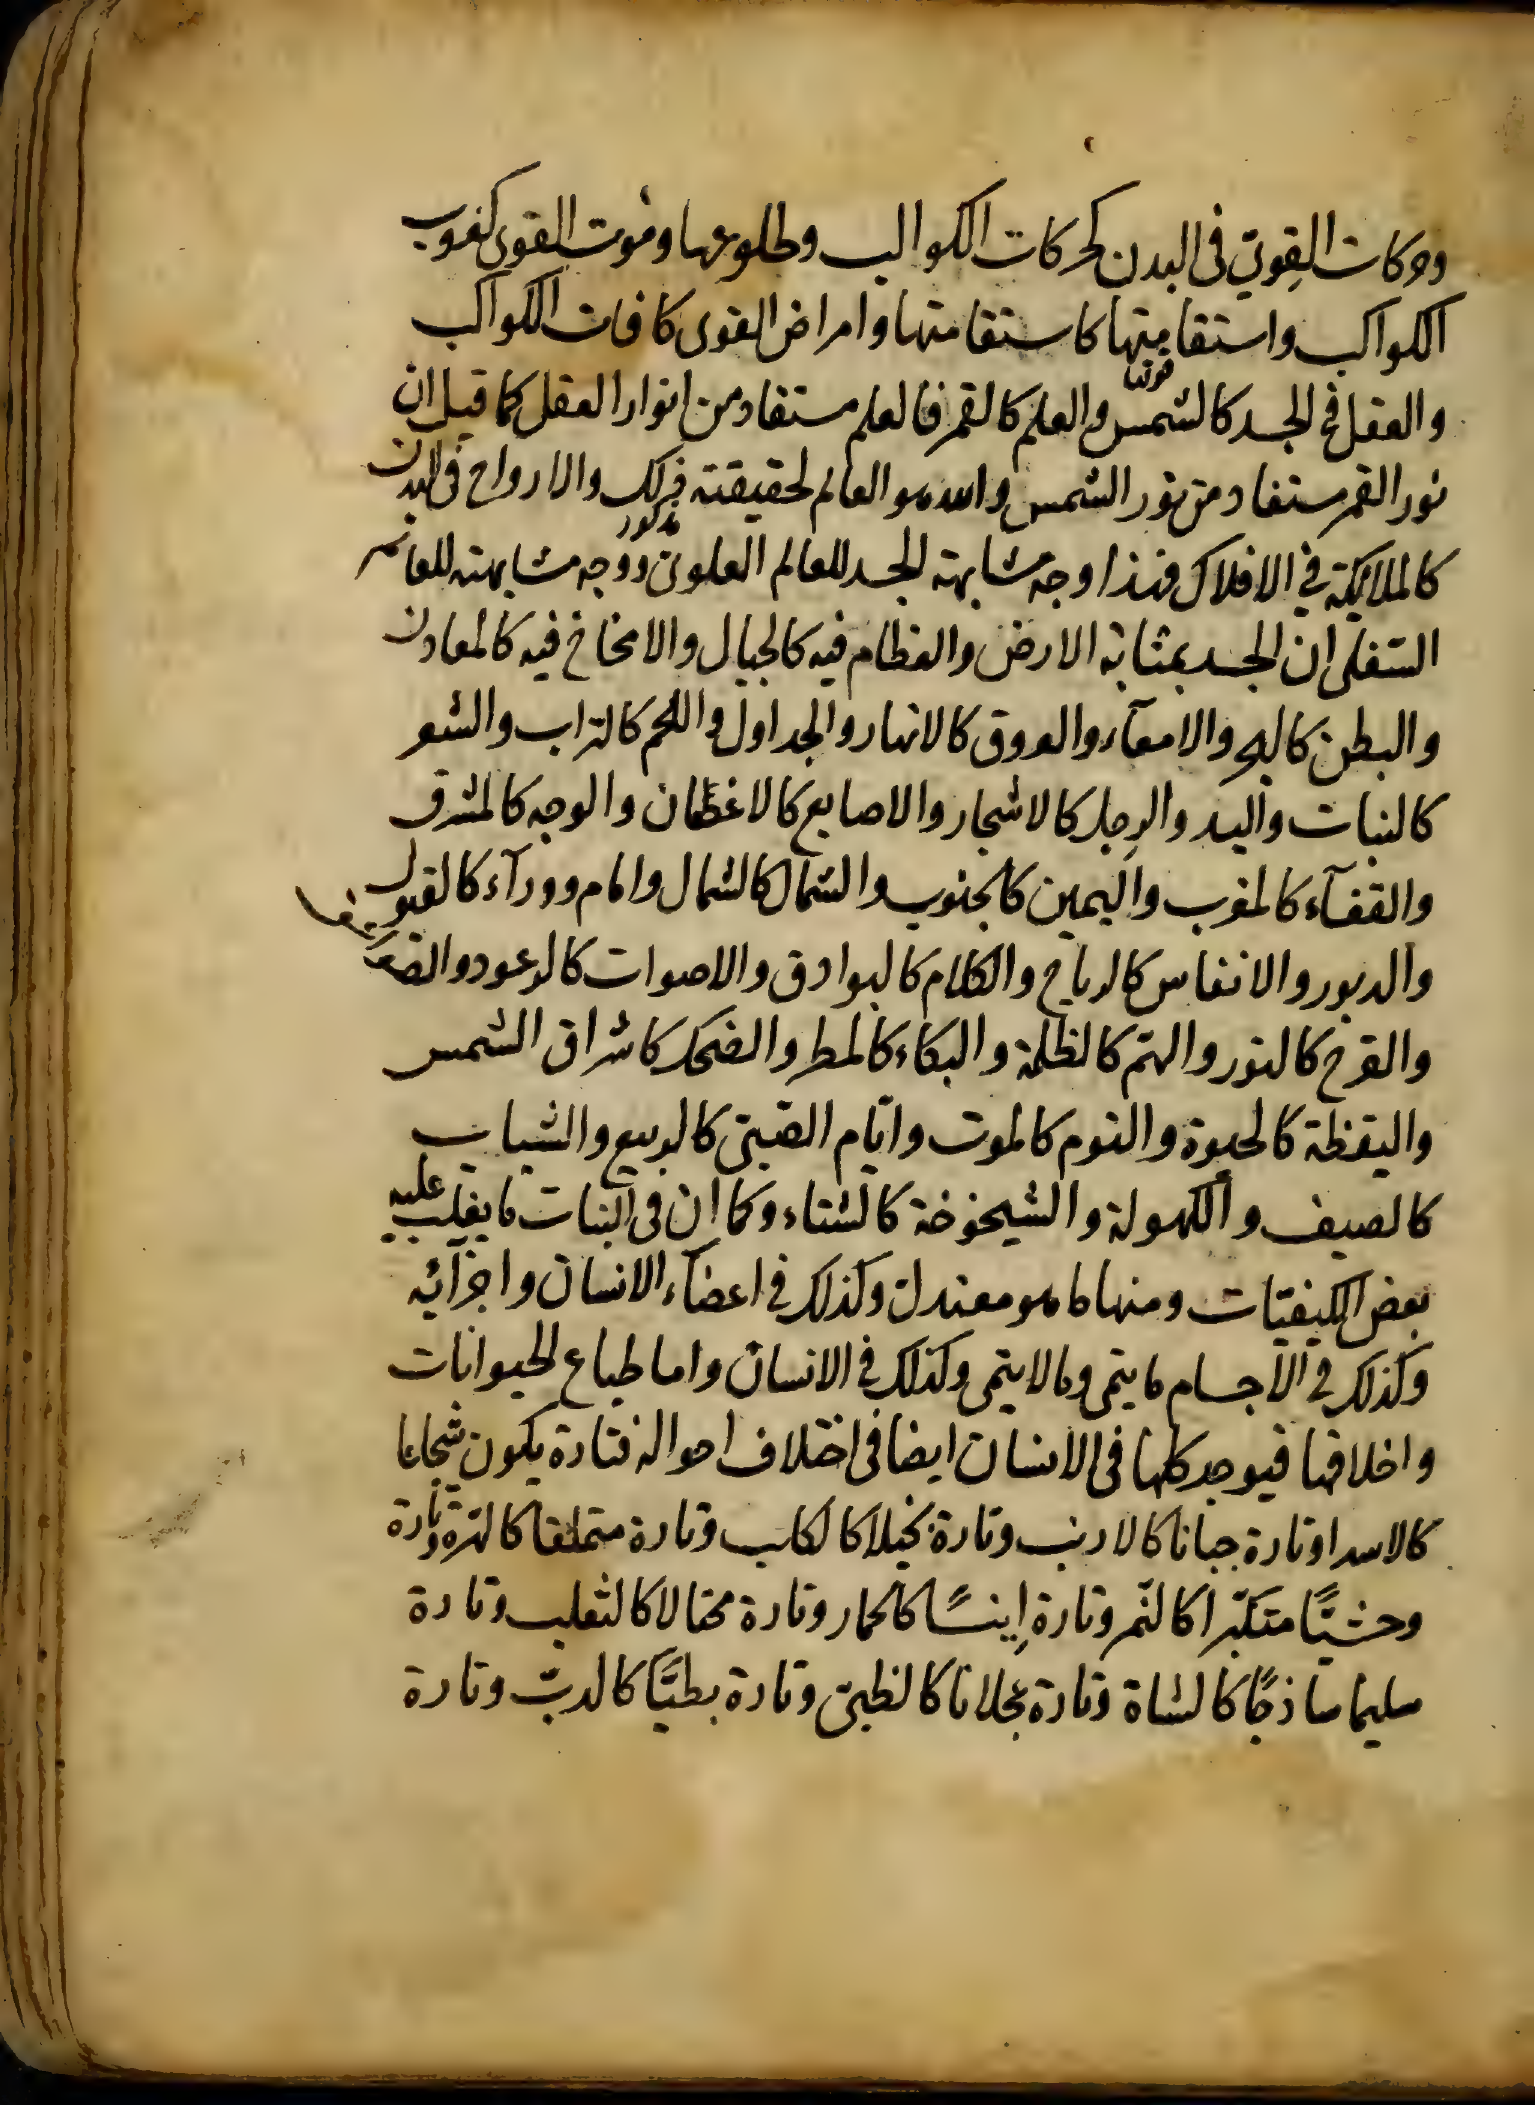 وحركات القوي فى البدن كحركات الكواكب وطلوعها وموت القوى كغروب
الكواكب واستقامتها كاستقامتها وامراض القوى كافات الكواكب
والعقل فى الجسد كالشمس والعلم كالقمر فالعلم مستفاد من انوار العقل كما قيل ان
نور القمر مستفاد من نور الشمس والله هو العالم لحقيقته والارواح فى البدن
كالملائكة في الافلاك فهذا وجه مشابهة الجسد للعالم العلوى ووجه مشابهته للعالم
مذكور
السفلى ان الجسد بمثابة الارض والعظام فيه كالجبال والامخاخ فيه كالمعادن
والبطن كالبحر والامعآء والعروق كالانهار والجداول واللحم كالتراب والشعر
كالنبات واليد والرجل كالاشجار والاصابع كالاغصان والوجه كالمشرق
والقفآء كالمغرب واليمين كالجنوب والشمال كالشمال وامام ووراء كالقبول
والدبور والانفاس كالرياح والكلام كالبوارق والاصوات كالرعود
والفرح كالنور والهم كالظلمة والبكاء كالمطر والضحك كاشراق الشمس
واليقظة كالحيوة والنوم كالموت وايّام الصبى كالربيع والشباب
كالصيف والكهولة والشيخوخة كالشتاء وكما ان فى النبات ما يغلب عليه
بعض الكيفيّات ومنها ما هو معتدل وكذلك في اعضآء الانسان واجزآئه
وكذلك في الاجسام ما ينمى وما لا ينمى وكذلك في الانسان واما طباع الحيوانات
واخلاقها فيوجد كلها فى الانسان ايضا فى اختلاف احواله فتارة يكون شجاعا
كالاسد وتارة جبانا كالارنب وتارة بخيلا كالكلب وتارة متملقا كالهرة وتارة
وحشيًّا متكبّرا كالنّمر وتارة إنيسًا كالحمار وتارة محتالا كالثعلب وتارة
سليما ساذجًا كالشاة وتارة عجلانا كالظبى وتارة بطيًّا كالدبّ وتارة